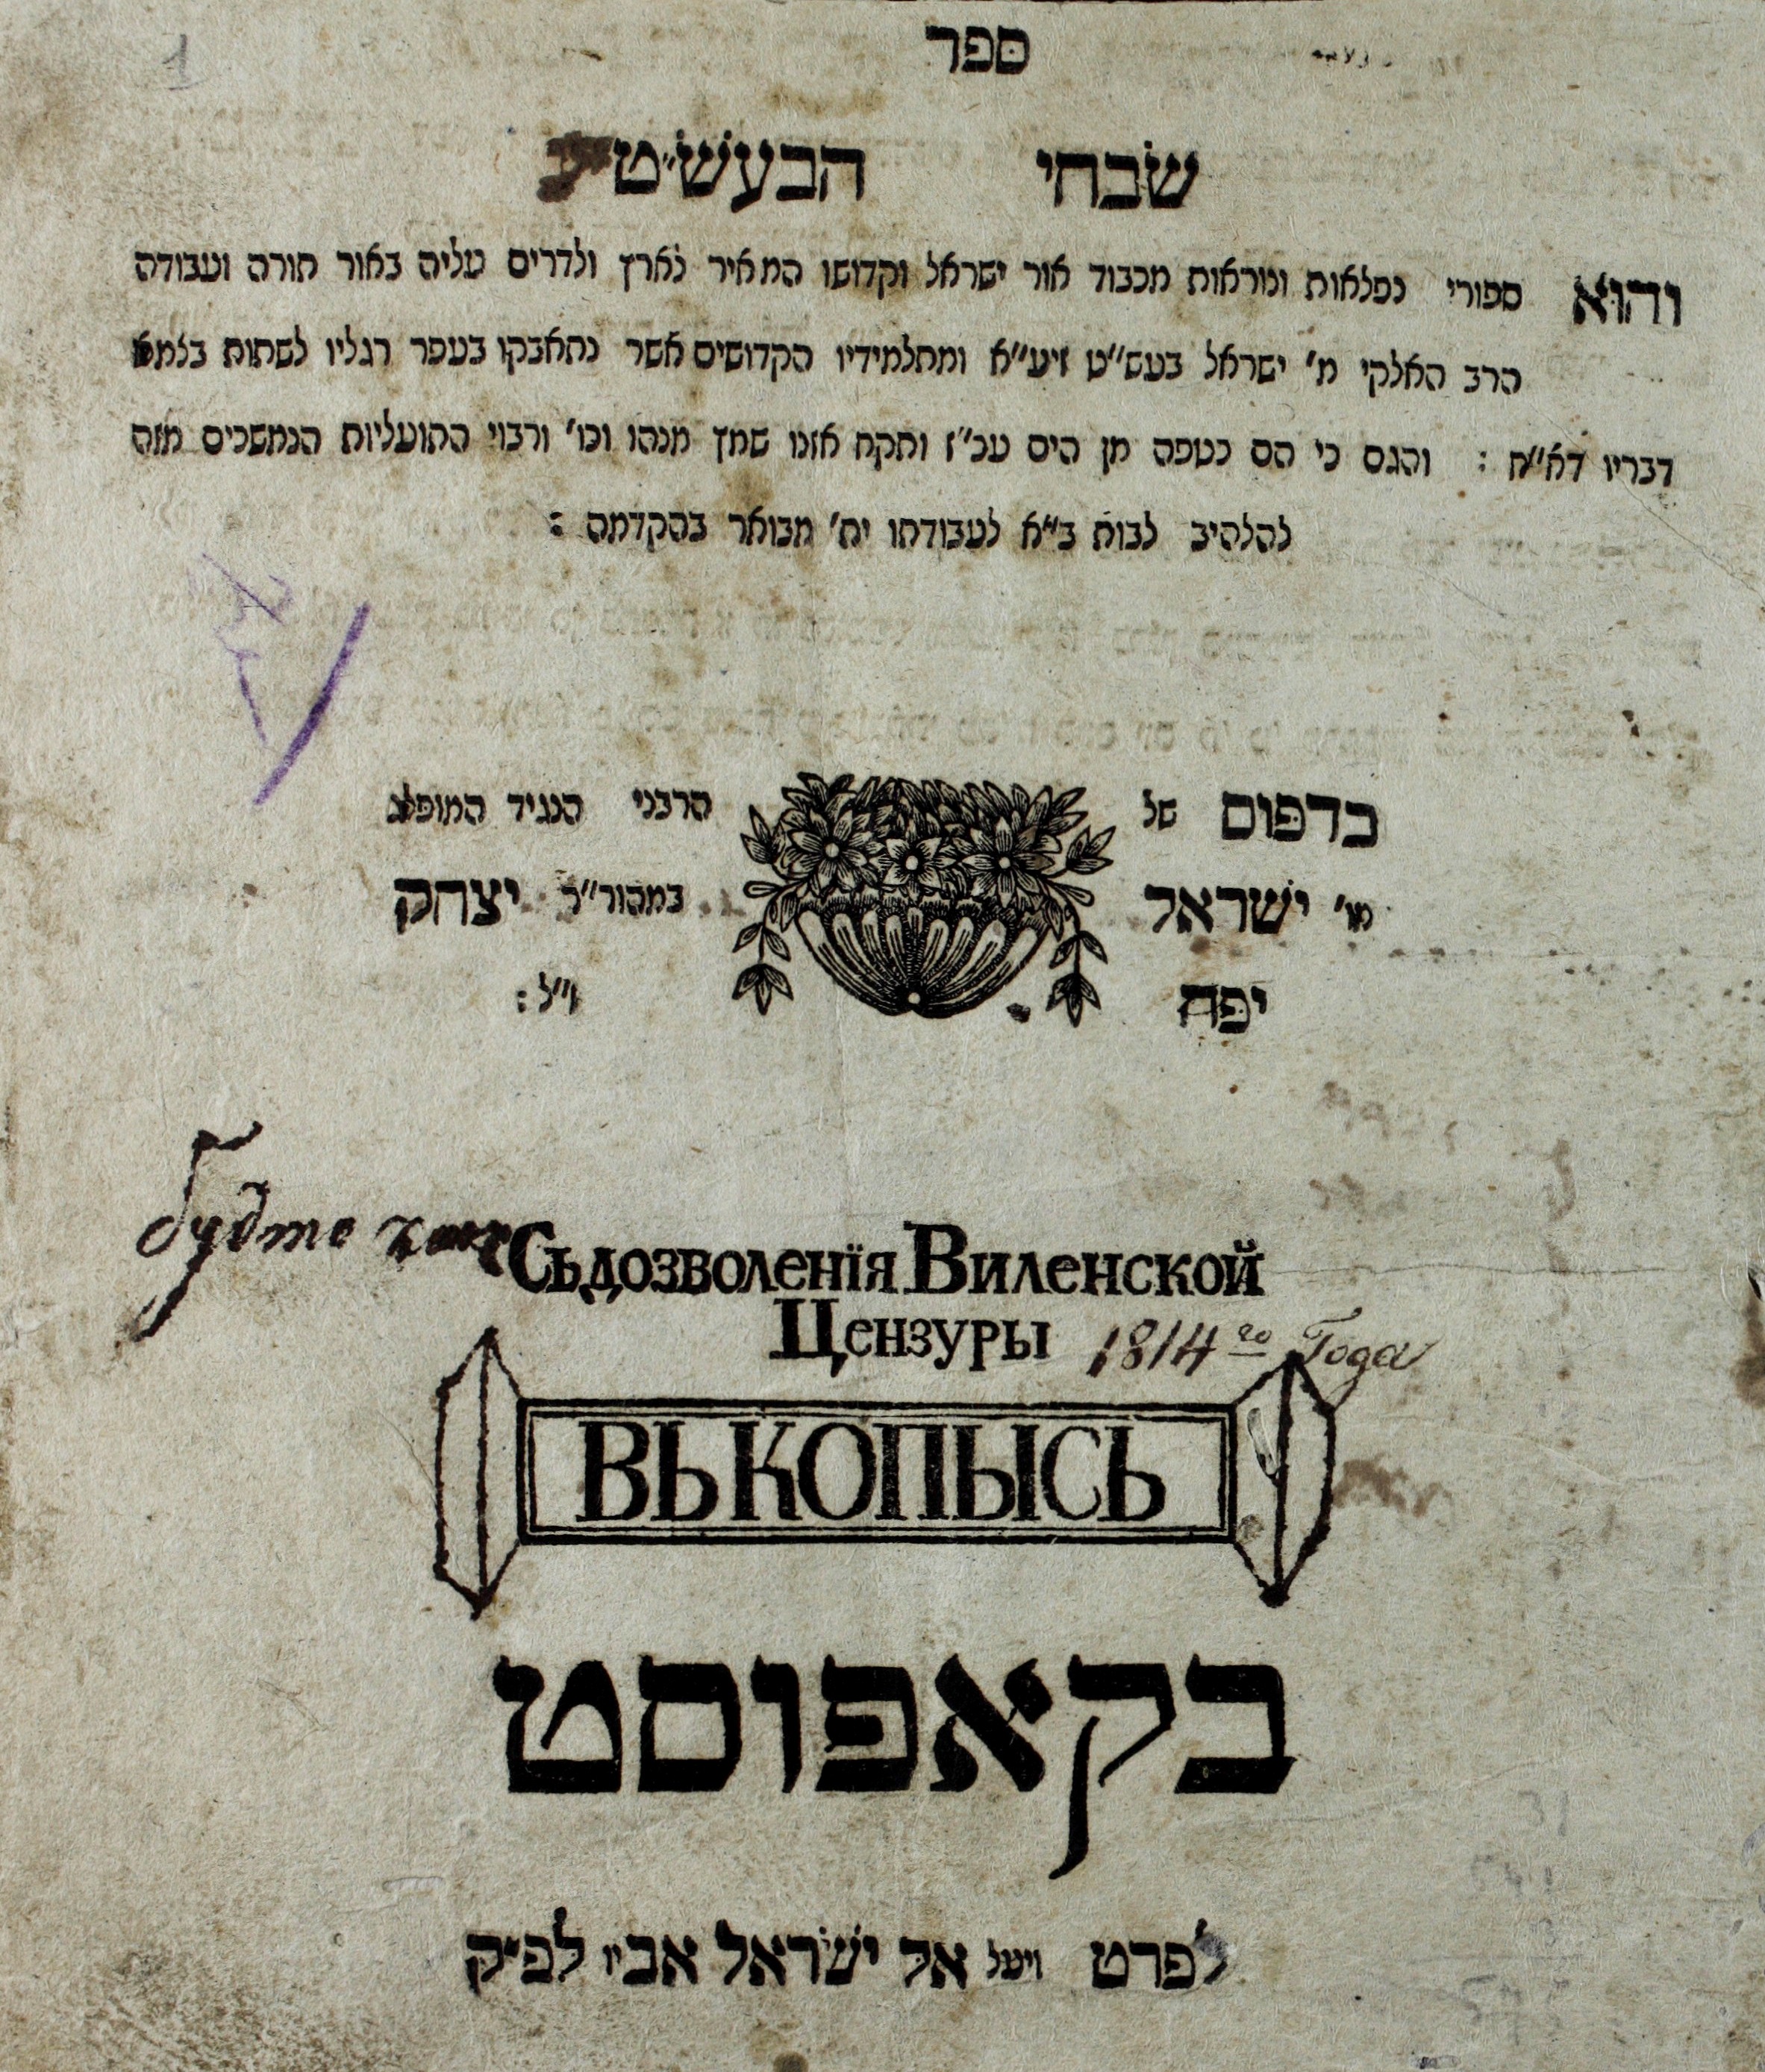 1
ספר
שבחי הבעש"ט
והוא ספורי נפלאות ונוראות מכבוד אור ישראל וקדושו המאיר לארץ ולדרים עליה באור תורה ועבודה
הרב האלקי מ' ישראל בעש"ט זיע"א ומתלמידיו הקדושים אשר נתאבקו בעפר רגליו לשתות בצמא
דבריו דא"ח : והגם כי הם כטפה מן הים עכ"ז ותקח אזנו שמץ מנהו וכו' ורבוי התועליות הנמשכים מזה
להלהיב לבות ב"א לעבודתו ית' מבואר בהקדמה :
בדפוס של הרבני הנגיד המופלג
מו' ישראל במהור"ר יצחק
יפה ז"ל :
будте
Съдозволенїя Виленской
Цензуры 1814го Года
ВЬ КОПЫСЬ
בקאפוסט
לפרט ויצל אל ישראל אביו לפ"ק